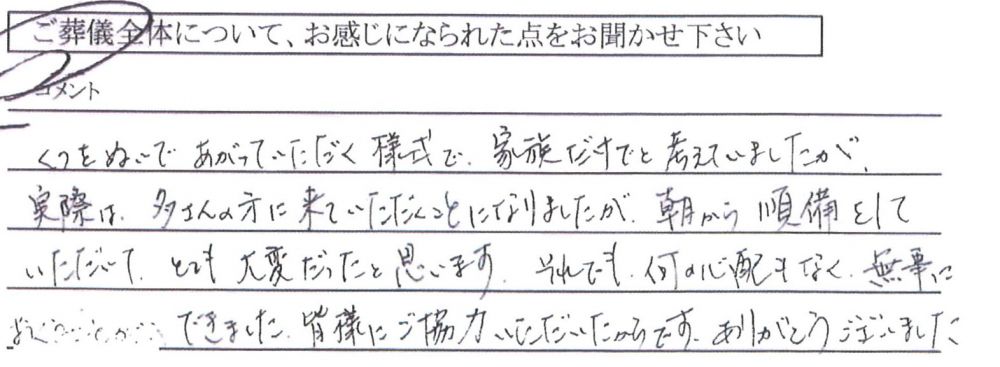 ご葬儀全体について、お感じになられた点をお聞かせ下さい
コメント
くつをぬいであがっていただく様式で、家族だけでと考えていましたが、
実際は、多くさんの方に来ていただくことになりましたが、朝から順備をして
いただいて、とても大変だったと思います。それでも、何の心配もなく、無事に
できました。皆様にご協力いただいたからです。ありがとうございました